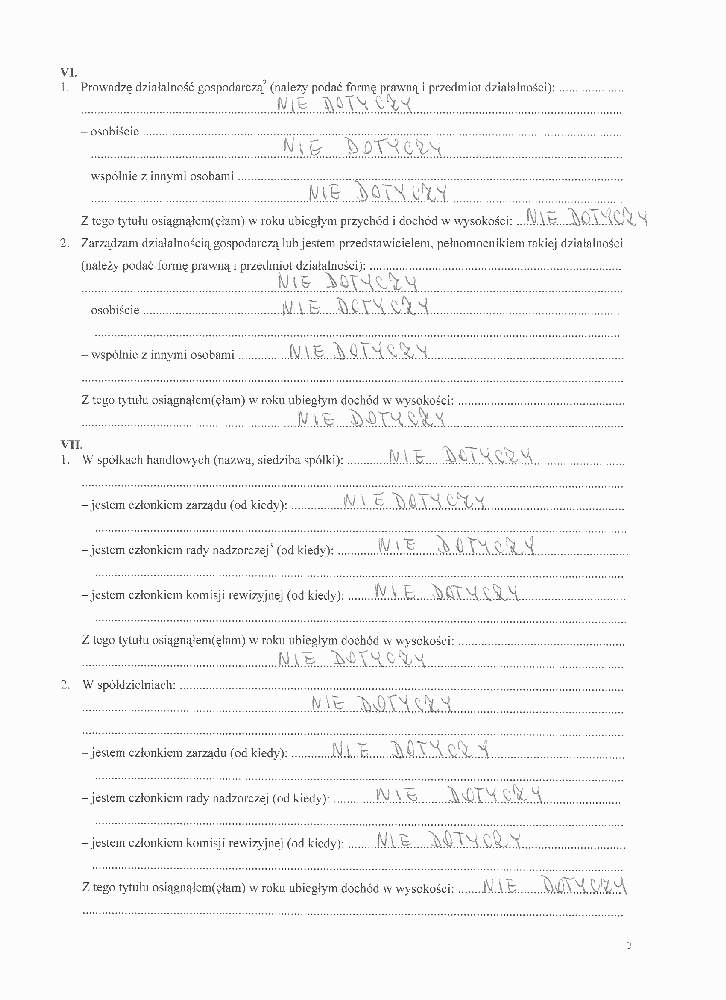 VI.
1. Prowadzę działalność gospodarczą² (należy podać formę prawną i przedmiot działalności): ....................
NIE DOTYCZY
– osobiście
NIE DOTYCZY
wspólnie z innymi osobami
NIE DOTYCZY
Z tego tytułu osiągnąłem(ęłam) w roku ubiegłym przychód i dochód w wysokości: NIE DOTYCZY
2. Zarządzam działalnością gospodarczą lub jestem przedstawicielem, pełnomocnikiem takiej działalności
(należy podać formę prawną i przedmiot działalności):
NIE DOTYCZY
osobiście NIE DOTYCZY
– wspólnie z innymi osobami NIE DOTYCZY
Z tego tytułu osiągnąłem(ęłam) w roku ubiegłym dochód w wysokości:
NIE DOTYCZY
VII.
1. W spółkach handlowych (nazwa, siedziba spółki): NIE DOTYCZY
– jestem członkiem zarządu (od kiedy): NIE DOTYCZY
– jestem członkiem rady nadzorczej³ (od kiedy): NIE DOTYCZY
– jestem członkiem komisji rewizyjnej (od kiedy): NIE DOTYCZY
Z tego tytułu osiągnąłem(ęłam) w roku ubiegłym dochód w wysokości:
NIE DOTYCZY
2. W spółdzielniach:
NIE DOTYCZY
– jestem członkiem zarządu (od kiedy): NIE DOTYCZY
– jestem członkiem rady nadzorczej (od kiedy): NIE DOTYCZY
– jestem członkiem komisji rewizyjnej (od kiedy): NIE DOTYCZY
Z tego tytułu osiągnąłem(ęłam) w roku ubiegłym dochód w wysokości: NIE DOTYCZY
3